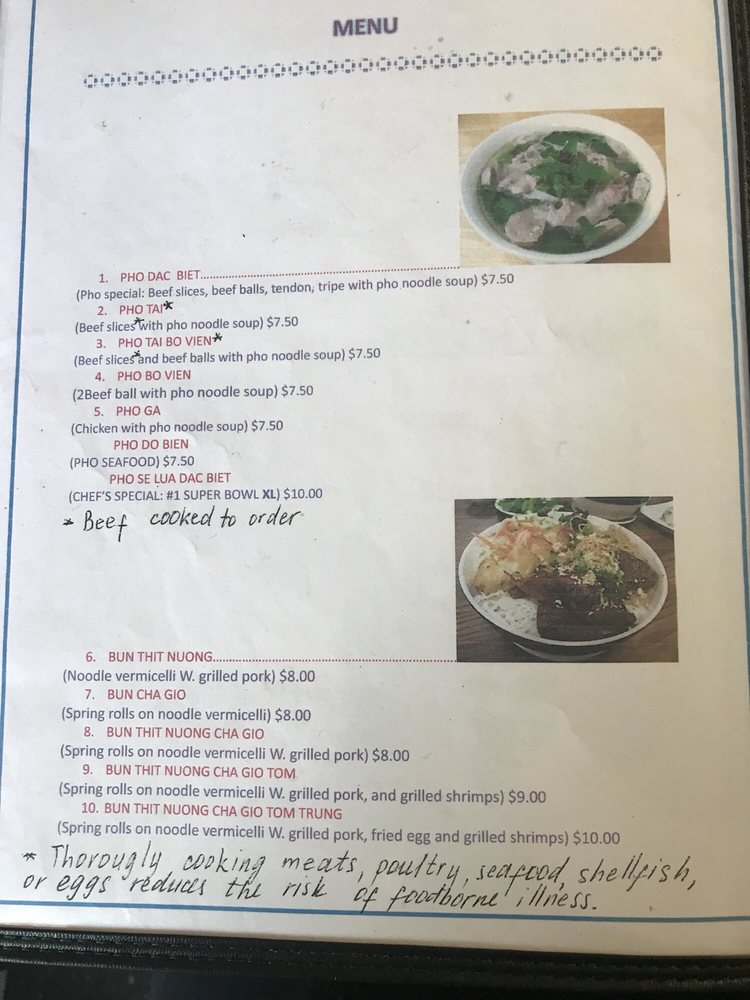 MENU
1. PHO DAC BIET........................................................................
(Pho special: Beef slices, beef balls, tendon, tripe with pho noodle soup) $7.50
2. PHO TAI*
(Beef slices* with pho noodle soup) $7.50
3. PHO TAI BO VIEN*
(Beef slices* and beef balls with pho noodle soup) $7.50
4. PHO BO VIEN
(2Beef ball with pho noodle soup) $7.50
5. PHO GA
(Chicken with pho noodle soup) $7.50
PHO DO BIEN
(PHO SEAFOOD) $7.50
PHO SE LUA DAC BIET
(CHEF'S SPECIAL: #1 SUPER BOWL XL) $10.00
* Beef cooked to order
6. BUN THIT NUONG....................................................................
(Noodle vermicelli W. grilled pork) $8.00
7. BUN CHA GIO
(Spring rolls on noodle vermicelli) $8.00
8. BUN THIT NUONG CHA GIO
(Spring rolls on noodle vermicelli W. grilled pork) $8.00
9. BUN THIT NUONG CHA GIO TOM
(Spring rolls on noodle vermicelli W. grilled pork, and grilled shrimps) $9.00
10. BUN THIT NUONG CHA GIO TOM TRUNG
(Spring rolls on noodle vermicelli W. grilled pork, fried egg and grilled shrimps) $10.00
* Thorougly cooking meats, poultry, seafood, shellfish,
or eggs reduces the risk of foodborne illness.